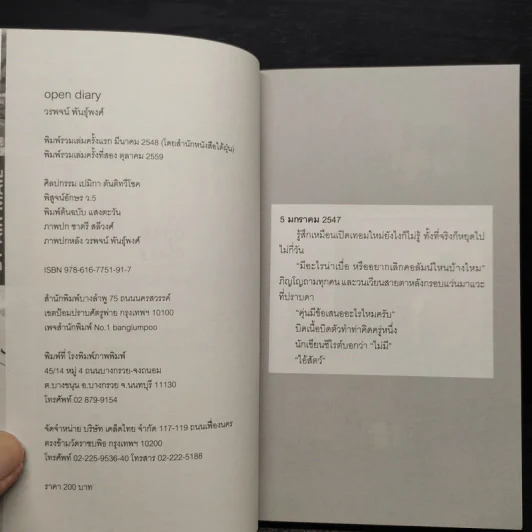 open diary
วรพจน์ พันธุ์พงศ์
พิมพ์รวมเล่มครั้งแรก มีนาคม 2548 (โดยสำนักหนังสือไต้ฝุ่น)
พิมพ์รวมเล่มครั้งที่สอง ตุลาคม 2559
ศิลปกรรม เปมิกา ตันติทวีโชค
พิสูจน์อักษร ว.5
พิมพ์ต้นฉบับ แสงตะวัน
ภาพปก ชาตรี สลีวงศ์
ภาพปกหลัง วรพจน์ พันธุ์พงศ์
ISBN 978-616-7751-91-7
สำนักพิมพ์บางลำพู 75 ถนนนครสวรรค์
เขตป้อมปราบศัตรูพ่าย กรุงเทพฯ 10100
เพจสำนักพิมพ์ No.1 banglumpoo
พิมพ์ที่ โรงพิมพ์ภาพพิมพ์
45/14 หมู่ 4 ถนนบางกรวย-จงถนอม
ต.บางขนุน อ.บางกรวย จ.นนทบุรี 11130
โทรศัพท์ 02 879-9154
จัดจำหน่าย บริษัท เคล็ดไทย จำกัด 117-119 ถนนเฟื่องนคร
ตรงข้ามวัดราชบพิธ กรุงเทพฯ 10200
โทรศัพท์ 02-225-9536-40 โทรสาร 02-222-5188
ราคา 200 บาท
5 มกราคม 2547
รู้สึกเหมือนเปิดเทอมใหม่ยังไงก็ไม่รู้ ทั้งที่จริงก็หยุดไป
ไม่กี่วัน
"มีอะไรน่าเบื่อ หรืออยากเลิกคอลัมน์ไหนบ้างไหม"
ภิญโญถามทุกคน และวนเวียนสายตาหลังกรอบแว่นมาแวะ
ที่ปราบดา
"คุ่นมีข้อเสนออะไรไหมครับ"
บิดเนื้อบิดตัวทำท่าคิดครู่หนึ่ง
นักเขียนซีไรต์บอกว่า "ไม่มี"
"ไอ้สัตว์"